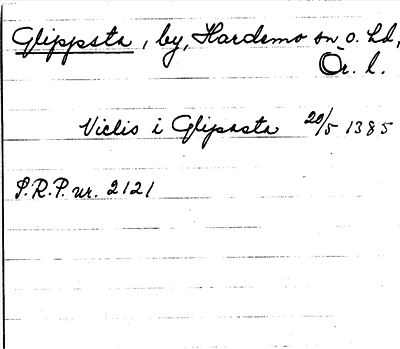 Glippsta, by, Hardemo sn o. hd,
Ör. l.
Niclis i Glipasta 20/5 1385
S.R.P. nr. 2121